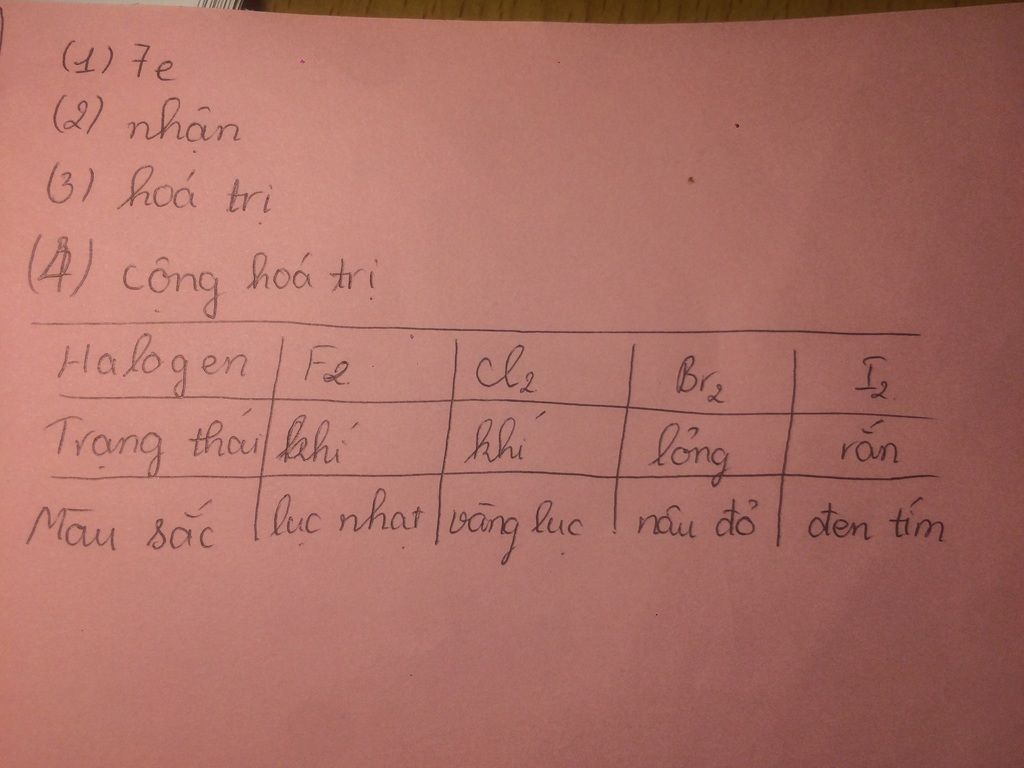 (1) 7e
(2) nhận
(3) hoá trị
(4) cộng hoá trị
Halogen F₂ Cl₂ Br₂ I₂
Trạng thái khí khí lỏng rắn
Màu sắc lục nhat vàng lục nâu đỏ đen tím